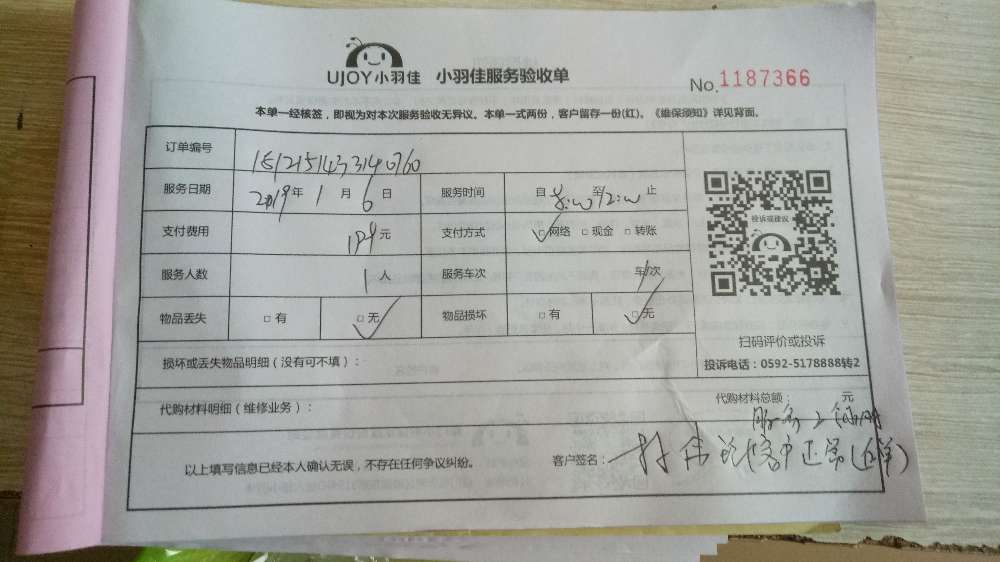 UJOY小羽佳 小羽佳服务验收单
No.1187366
本单一经核签，即视为对本次服务验收无异议。本单一式两份，客户留存一份(红)。《维保须知》详见背面。
订单编号 1512151433140760
服务日期 2019年 1 月 6 日 服务时间 自 至 止
支付费用 元 支付方式 □网络 □现金 □转账
服务人数 1 人 服务车次 车/次
物品丢失 □有 □无 物品损坏 □有 □无
投诉或建议
扫码评价或投诉
投诉电话：0592-5178888转2
损坏或丢失物品明细（没有可不填）：
代购材料明细（维修业务）：
代购材料总额： 元
以上填写信息已经本人确认无误，不存在任何争议纠纷。
客户签名：